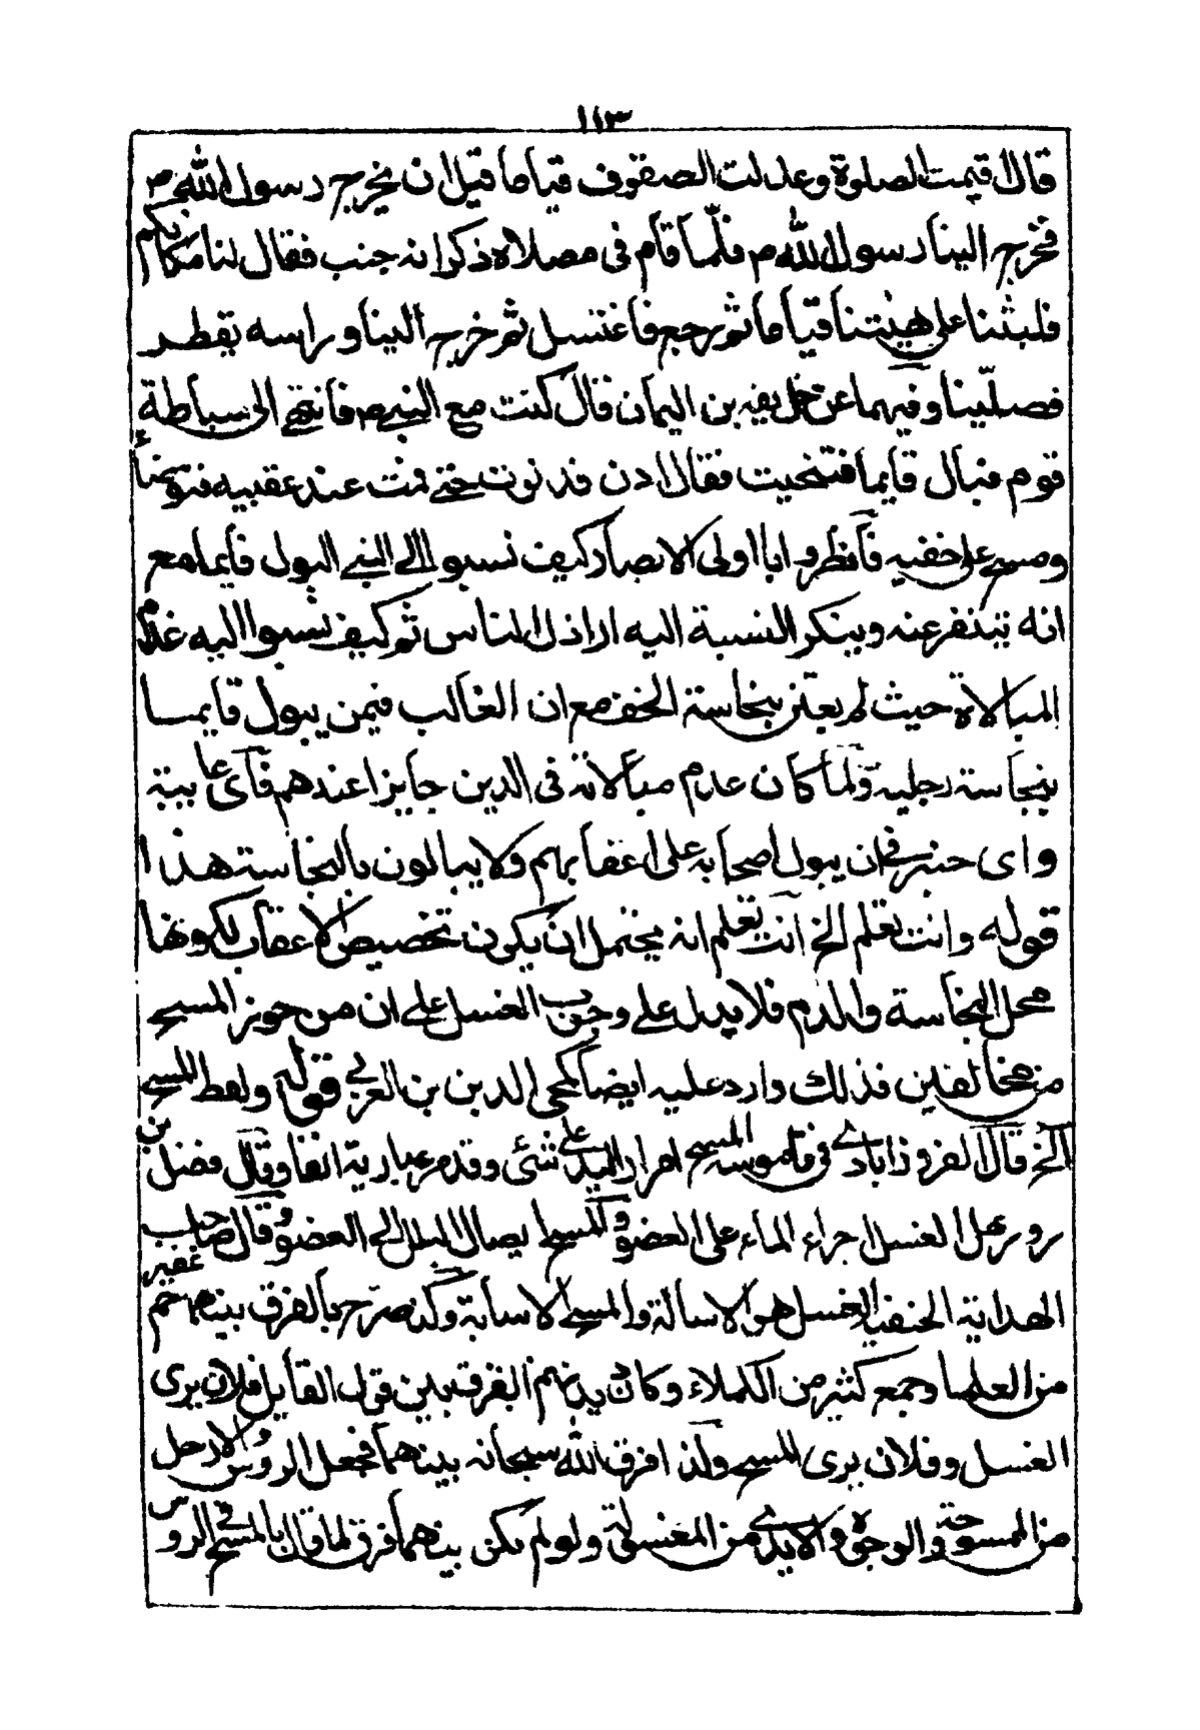 ١١٣
قال اقيمت الصلوة وعدلت الصفوف قياما قبل ان يخرج رسول الله ص
فخرج الينا رسول الله م فلما قام فى مصلاه ذكر انه جنب فقال لنا مكانكم
فلبثنا على هيئتنا قياما ثم رجع فاغتسل ثم خرج الينا وراسه يقطر
فصلّينا وفيهما عن حذيفه بن اليمان قال كنت مع النبي م فانتهى الى سباطة
قوم فبال قايما فتنحيت فقال ادن فدنوت حتى قمت عند عقبيه فتوضأ
ومسح على خفيه فانظروا يا اولى الابصار كيف نسبوا الى النبي البول قايما مع
انه يتنفر عنه وينكر النسبة اليه اراذل الناس ثم كيف نسبوا اليه عدم
المبالاة حيث لم يعتن بنجاسة الخف مع ان الغالب فيمن يبول قايما
نجاسة رجليه ولما كان عدم مبالاته فى الدين جايزا عندهم فاى عايبة
واى حنر فى ان يبول اصحابه على اعقابهم ولا يبالون بالنجاسة هذا
قوله وانت تعلم الخ انت تعلم انه يحتمل ان يكون تخصيص الاعقاب لكونها
محل النجاسة والدم فلا يدل على وجوب الغسل على ان من جوز المسح
من مخالفين فذلك وارد عليه ايضا كمحى الدين بن العربي قوله ولفظ المسح
الخ قال الفروزابادي فى قاموسه المسح امرار اليد على شئ وقد مر عبارية انفا وقال فضل بن
روزبهان الغسل اجراء الماء على العضو والمسح ايصال البلل الى العضو وقال صاحب
الهداية الحنفية الغسل هو الاسالة والمسح الاسابة وكذ صرّح بالفرق بينهما جم غفير
من العلما وجمع كثير من الكملاء وكان بديهم الفرق بين قول القايل فلان يرى
الغسل وفلان يرى المسح ولذا فرق الله سبحانه بينهما فجعل الروُس والارجل
من الممسوحة والوجوة والايدي من المغسولة ولو لم يكن بينهما فرق لما قال بالمسح فى الروس